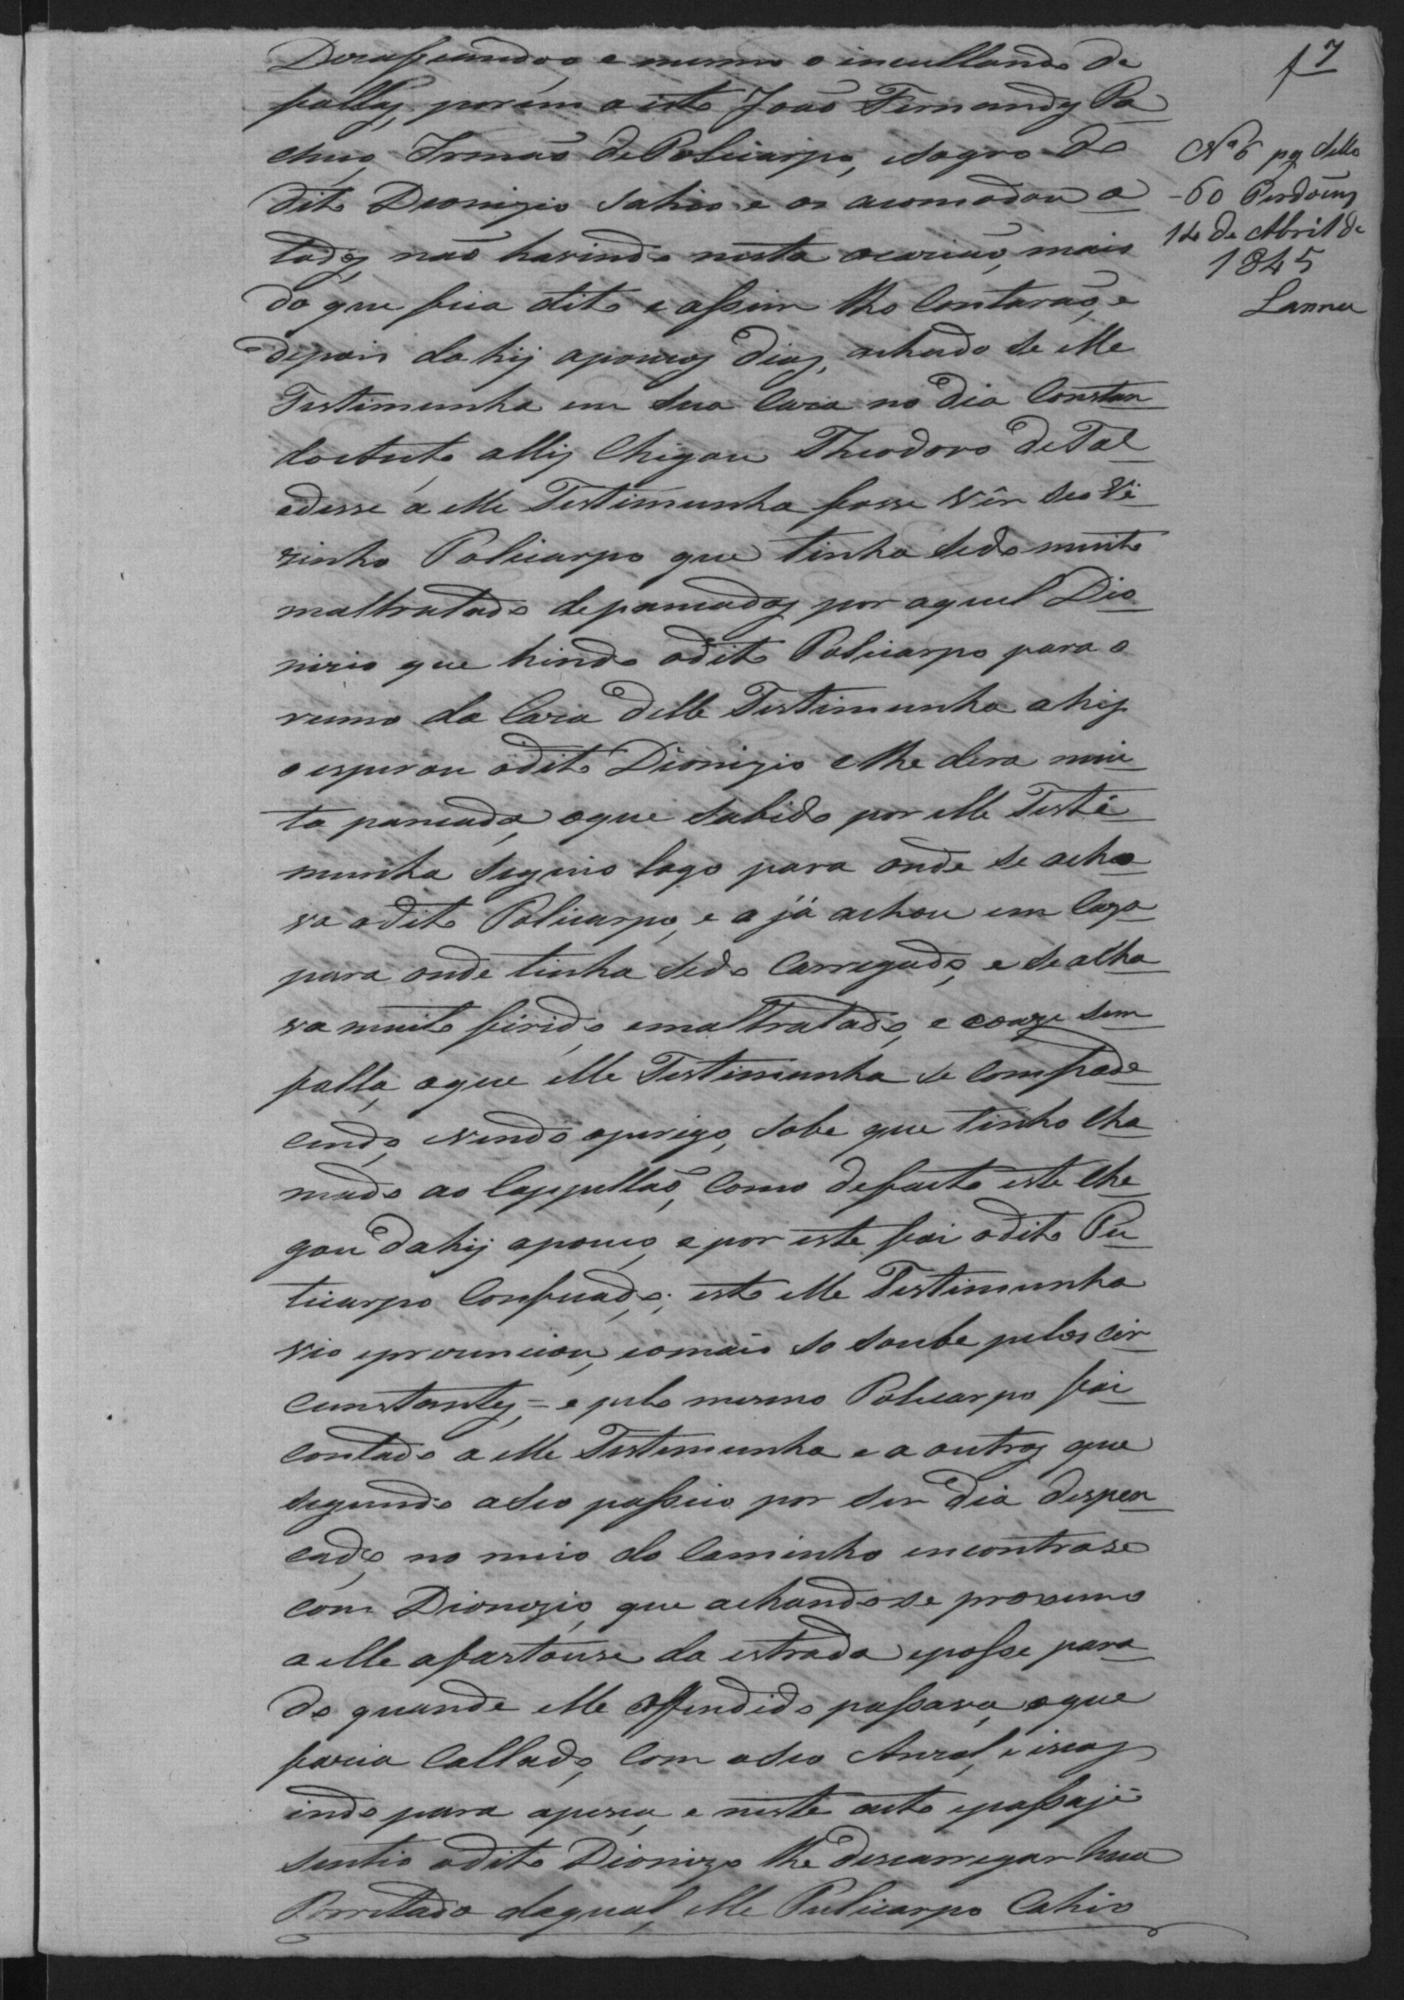 f 7
Nº 6 pg Sello
60 Perdoens
14 de Abril de
1845
Lanna
Desafiando, e mesmo o incultando de
falças, porem a isto João Fernandes Pa
checo, Irmão de Policarpo, e sogro do
dito Dionizio sahio e os acomodou a
todos, não havindo nesta ocazião mais
do que fica dito e assim lho contarão, e
depois dahij apoucos dias, achado se elle
Testimunha em sua Caza no dia Constan
doauto, allij Chigou Theodoro de Tal
edisse a elle Testimunha fosse vêr seo Ve
zinho Policarpo que tinha sedo muito
maltratado depancadas por aquel Dio
nizio que hindo odito Policarpo para o
rumo da Caza delle Testimunha ahij
o esperou odito Dionizio e lhe dera mui
ta pancada, oque sabido por elle Teste
munha seguio logo para onde se acha
va odito Policarpo, e o já achou em Caza
para onde tinha sedo Carregado, e se acha
va muito firido, emaltratado, e coaze sem
falla, oque elle Testimunha se Compade
cendo, evendo operigo, sabe que tinho cha
mado ao Cappellão, como defacto este che
gou dahij apouco, e por este foi odito Pu
licarpo Confeçado; isto elle Testimunha
vio eprezenciou, eomais so soube pelos cir
cunstantes, = e pelo mesmo Policarpo foi
contado a elle Testimunha e a outros que
seguindo aseo passeio por ser dia despen
cado, no meio do Caminho encontrase
com Dionizio, que achandose proximo
a elle afastouse da estrada eposse para
do quando elle Offendido passava, oque
fazia Callado, com oseo Anzol, e iscas
indo para apesca, e neste auto epassaje
sentio odito Dionizo lhe descarregar hua
Porretada daqual, elle Pulicarpo Cahio